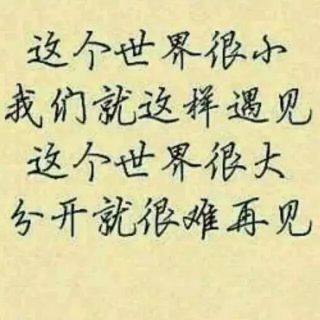 这个世界很小
我们就这样遇见
这个世界很大
分开就很难再见